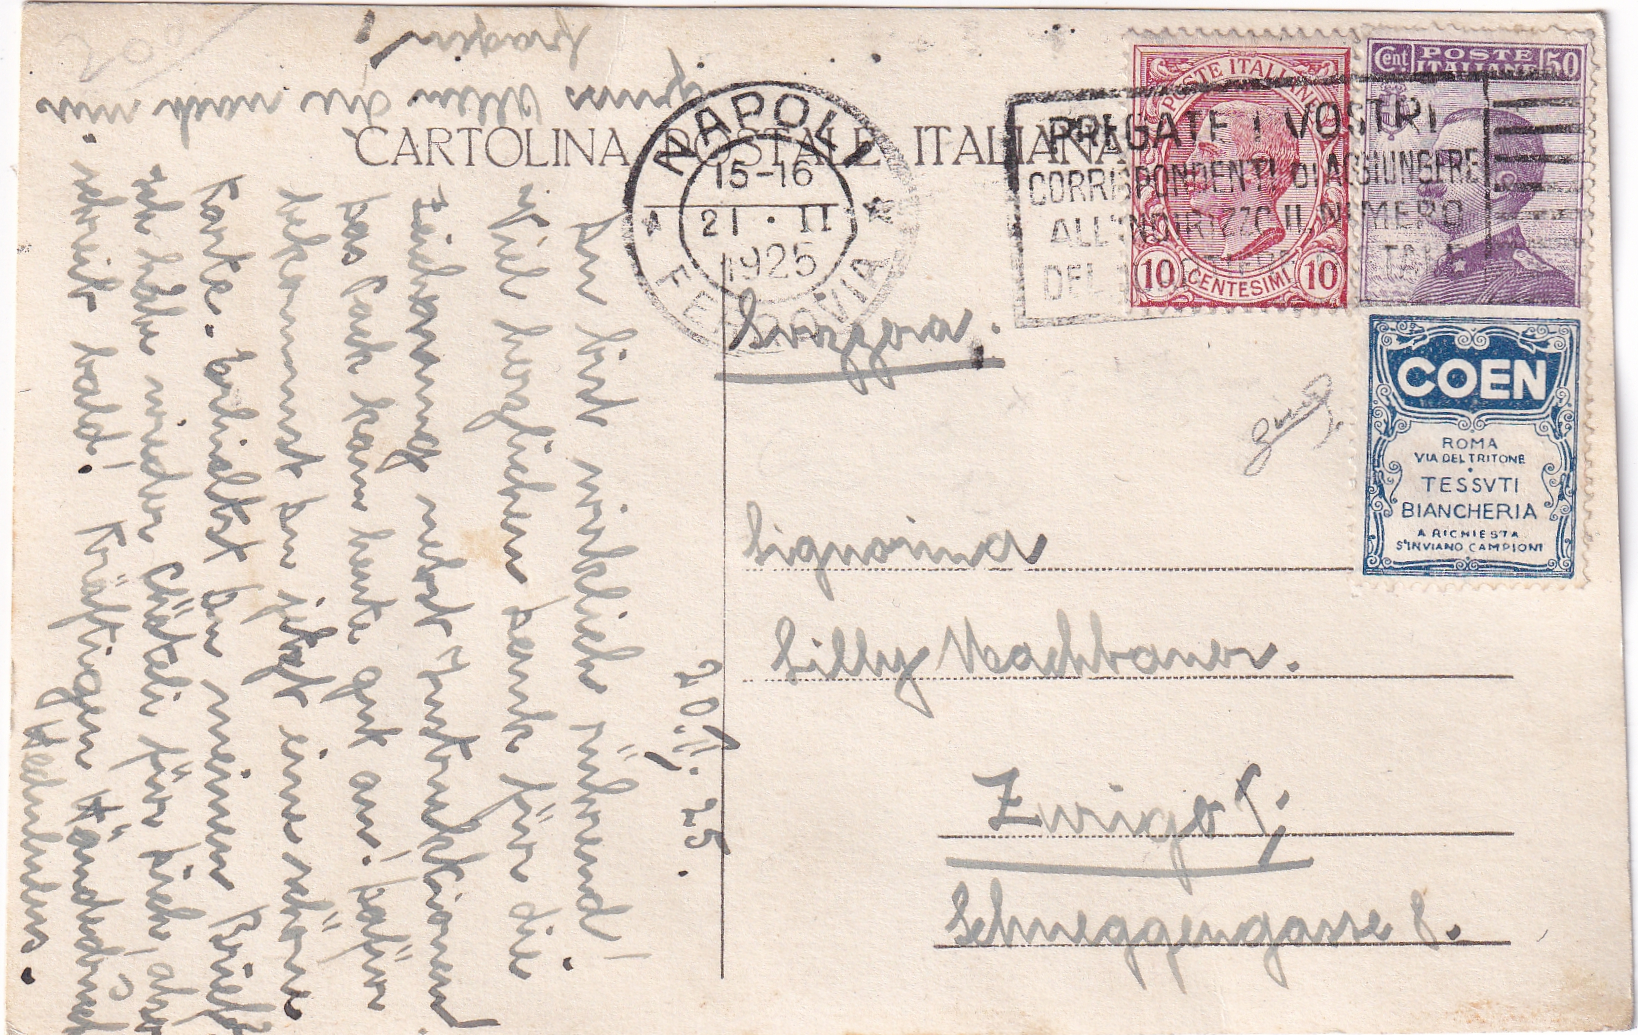 CARTOLINA POSTALE ITALIANA
NAPOLI
15-16
21 · II
1925
FERROVIA
PREGATE I VOSTRI
CORRISPONDENTI DI AGGIUNGERE
ALL'INDIRIZZO IL NUMERO
DEL
POSTE ITALIANE
10 CENTESIMI 10
Cent POSTE ITALIANE 50
COEN
ROMA
VIA DEL TRITONE
TESSVTI
BIANCHERIA
A RICHIESTA
S'INVIANO CAMPIONI
Svizzera.
Signorina
Silly Nachbauer.
Zurigo 1;
Schneggengasse 8.
20.II.25.
Du bist wirklich rührend!
Viel herzlichen Dank für die
Zeichnung nebst Instruktionen
das Pak kam heute gut an! Dafür
bekommst Du jetzt eine schöne
Karte. Erhieltst Du meinen Brief?
Ich habe wieder für Dich, also
schreib bald! Kräftigen Händedruck
Hedulus.
Gruss Allen die nach mir
fragen!